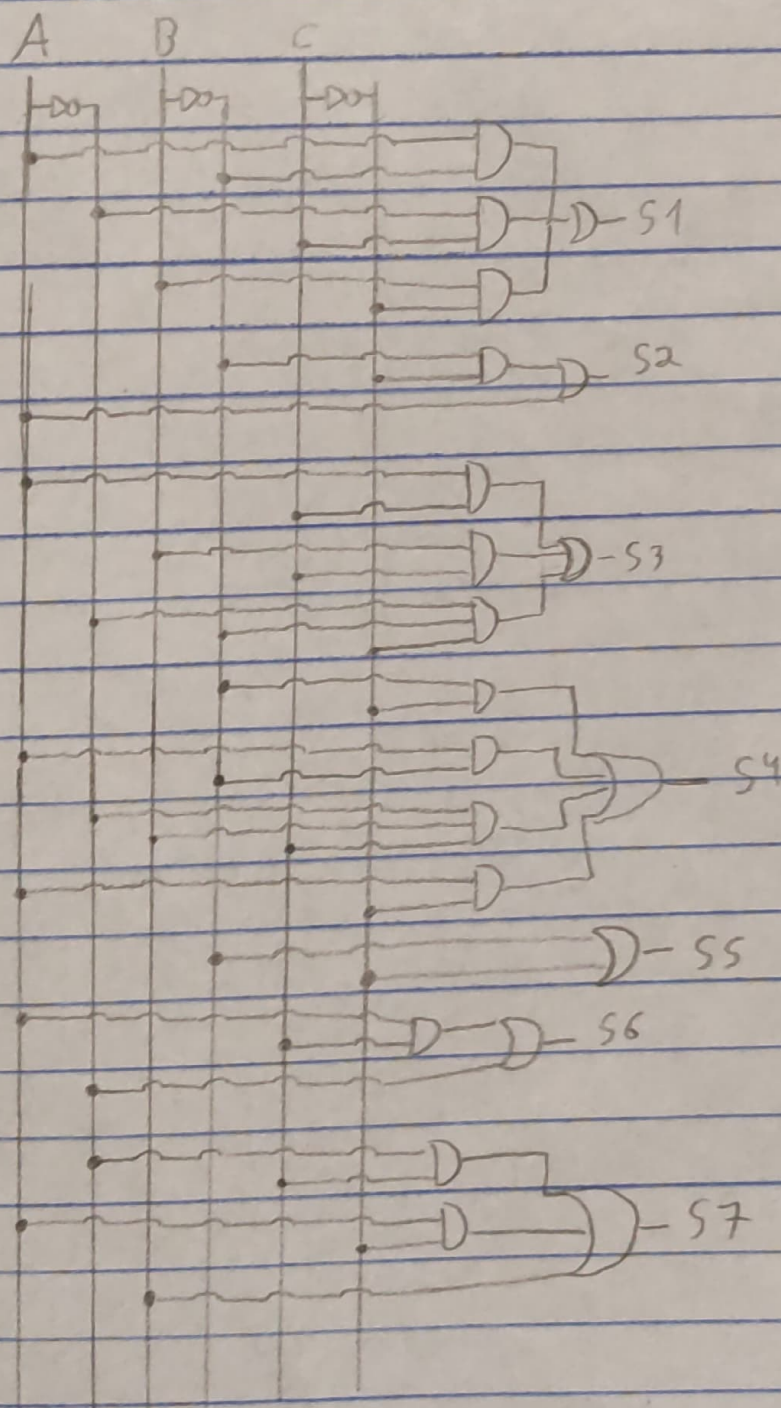 A B C
S1
S2
S3
S4
S5
S6
S7